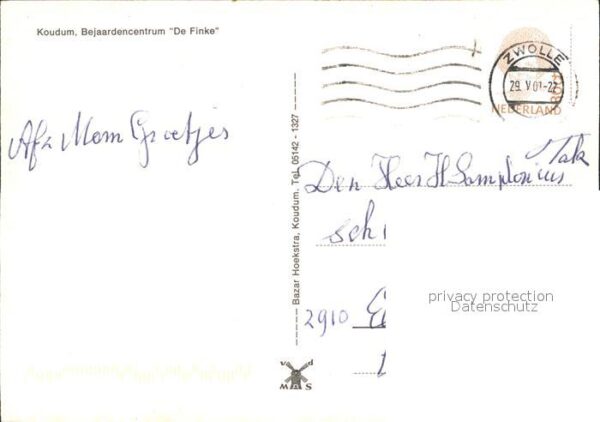 Koudum, Bejaardencentrum "De Finke"
ZWOLLE
29. V 01-22
NEDERLAND
Afz Mem Groetjes
Den Heer H Samplonius
Tak
sch
2910
Bazar Hoekstra, Koudum. Tel. 05142 - 1327
privacy protection
Datenschutz